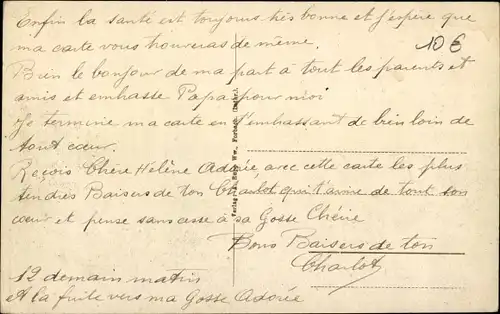 Enfin la santé est toujours très bonne et j'espère que
ma carte vous trouveras de même.
10 €
Bien le bonjour de ma part à tout les parents et
amis et embasse Papa pour moi
Je termine ma carte en t'embassant de bien loin de
tout cœur.
Reçois Chère Hélène Adorée, avec cette carte les plus
tendres Baisers de ton Charlot qui t'aime de tout son
cœur et pense sans cesse à sa Gosse Chérie
Bons Baisers de ton
Charlot
12 demain matin
et la fuite vers ma Gosse Adorée
Verlag Ww. Forbach (Lothr.)